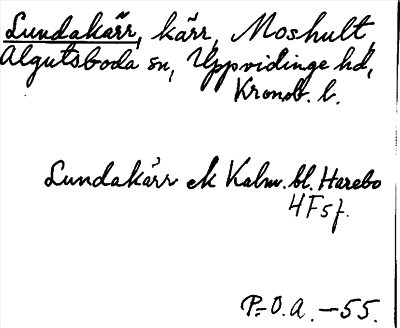 Lundakärr, kärr, Moshult,
Algutsboda sn, Uppvidinge hd,
Kronob. l.
Lundakärr ek Kalm. bl. Harebo
4F5f.
P.-O.A. -55.